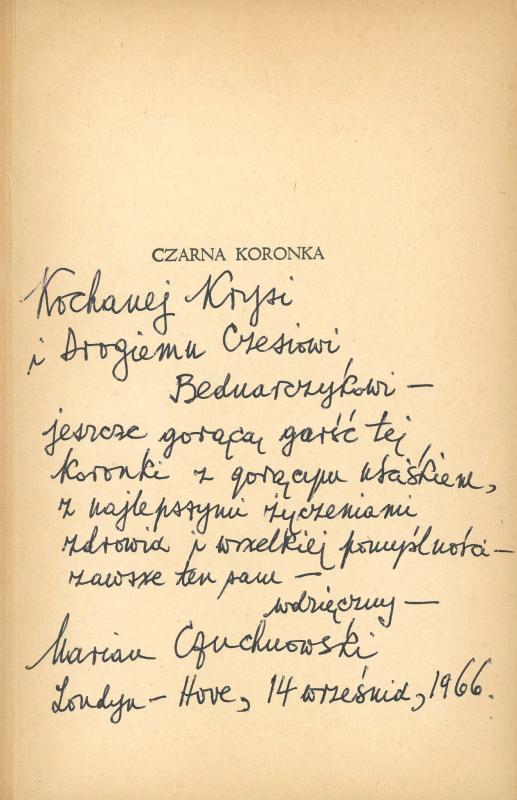 CZARNA KORONKA
Kochanej Krysi
i Drogiemu Czesiowi
Bednarczykowi —
jeszcze gorącą garść tej
koronki z gorącym uściskiem,
z najlepszymi życzeniami
zdrowia i wszelkiej pomyślności —
zawsze ten sam —
wdzięczny —
Marian Czuchnowski
Londyn — Hove, 14 września, 1966.